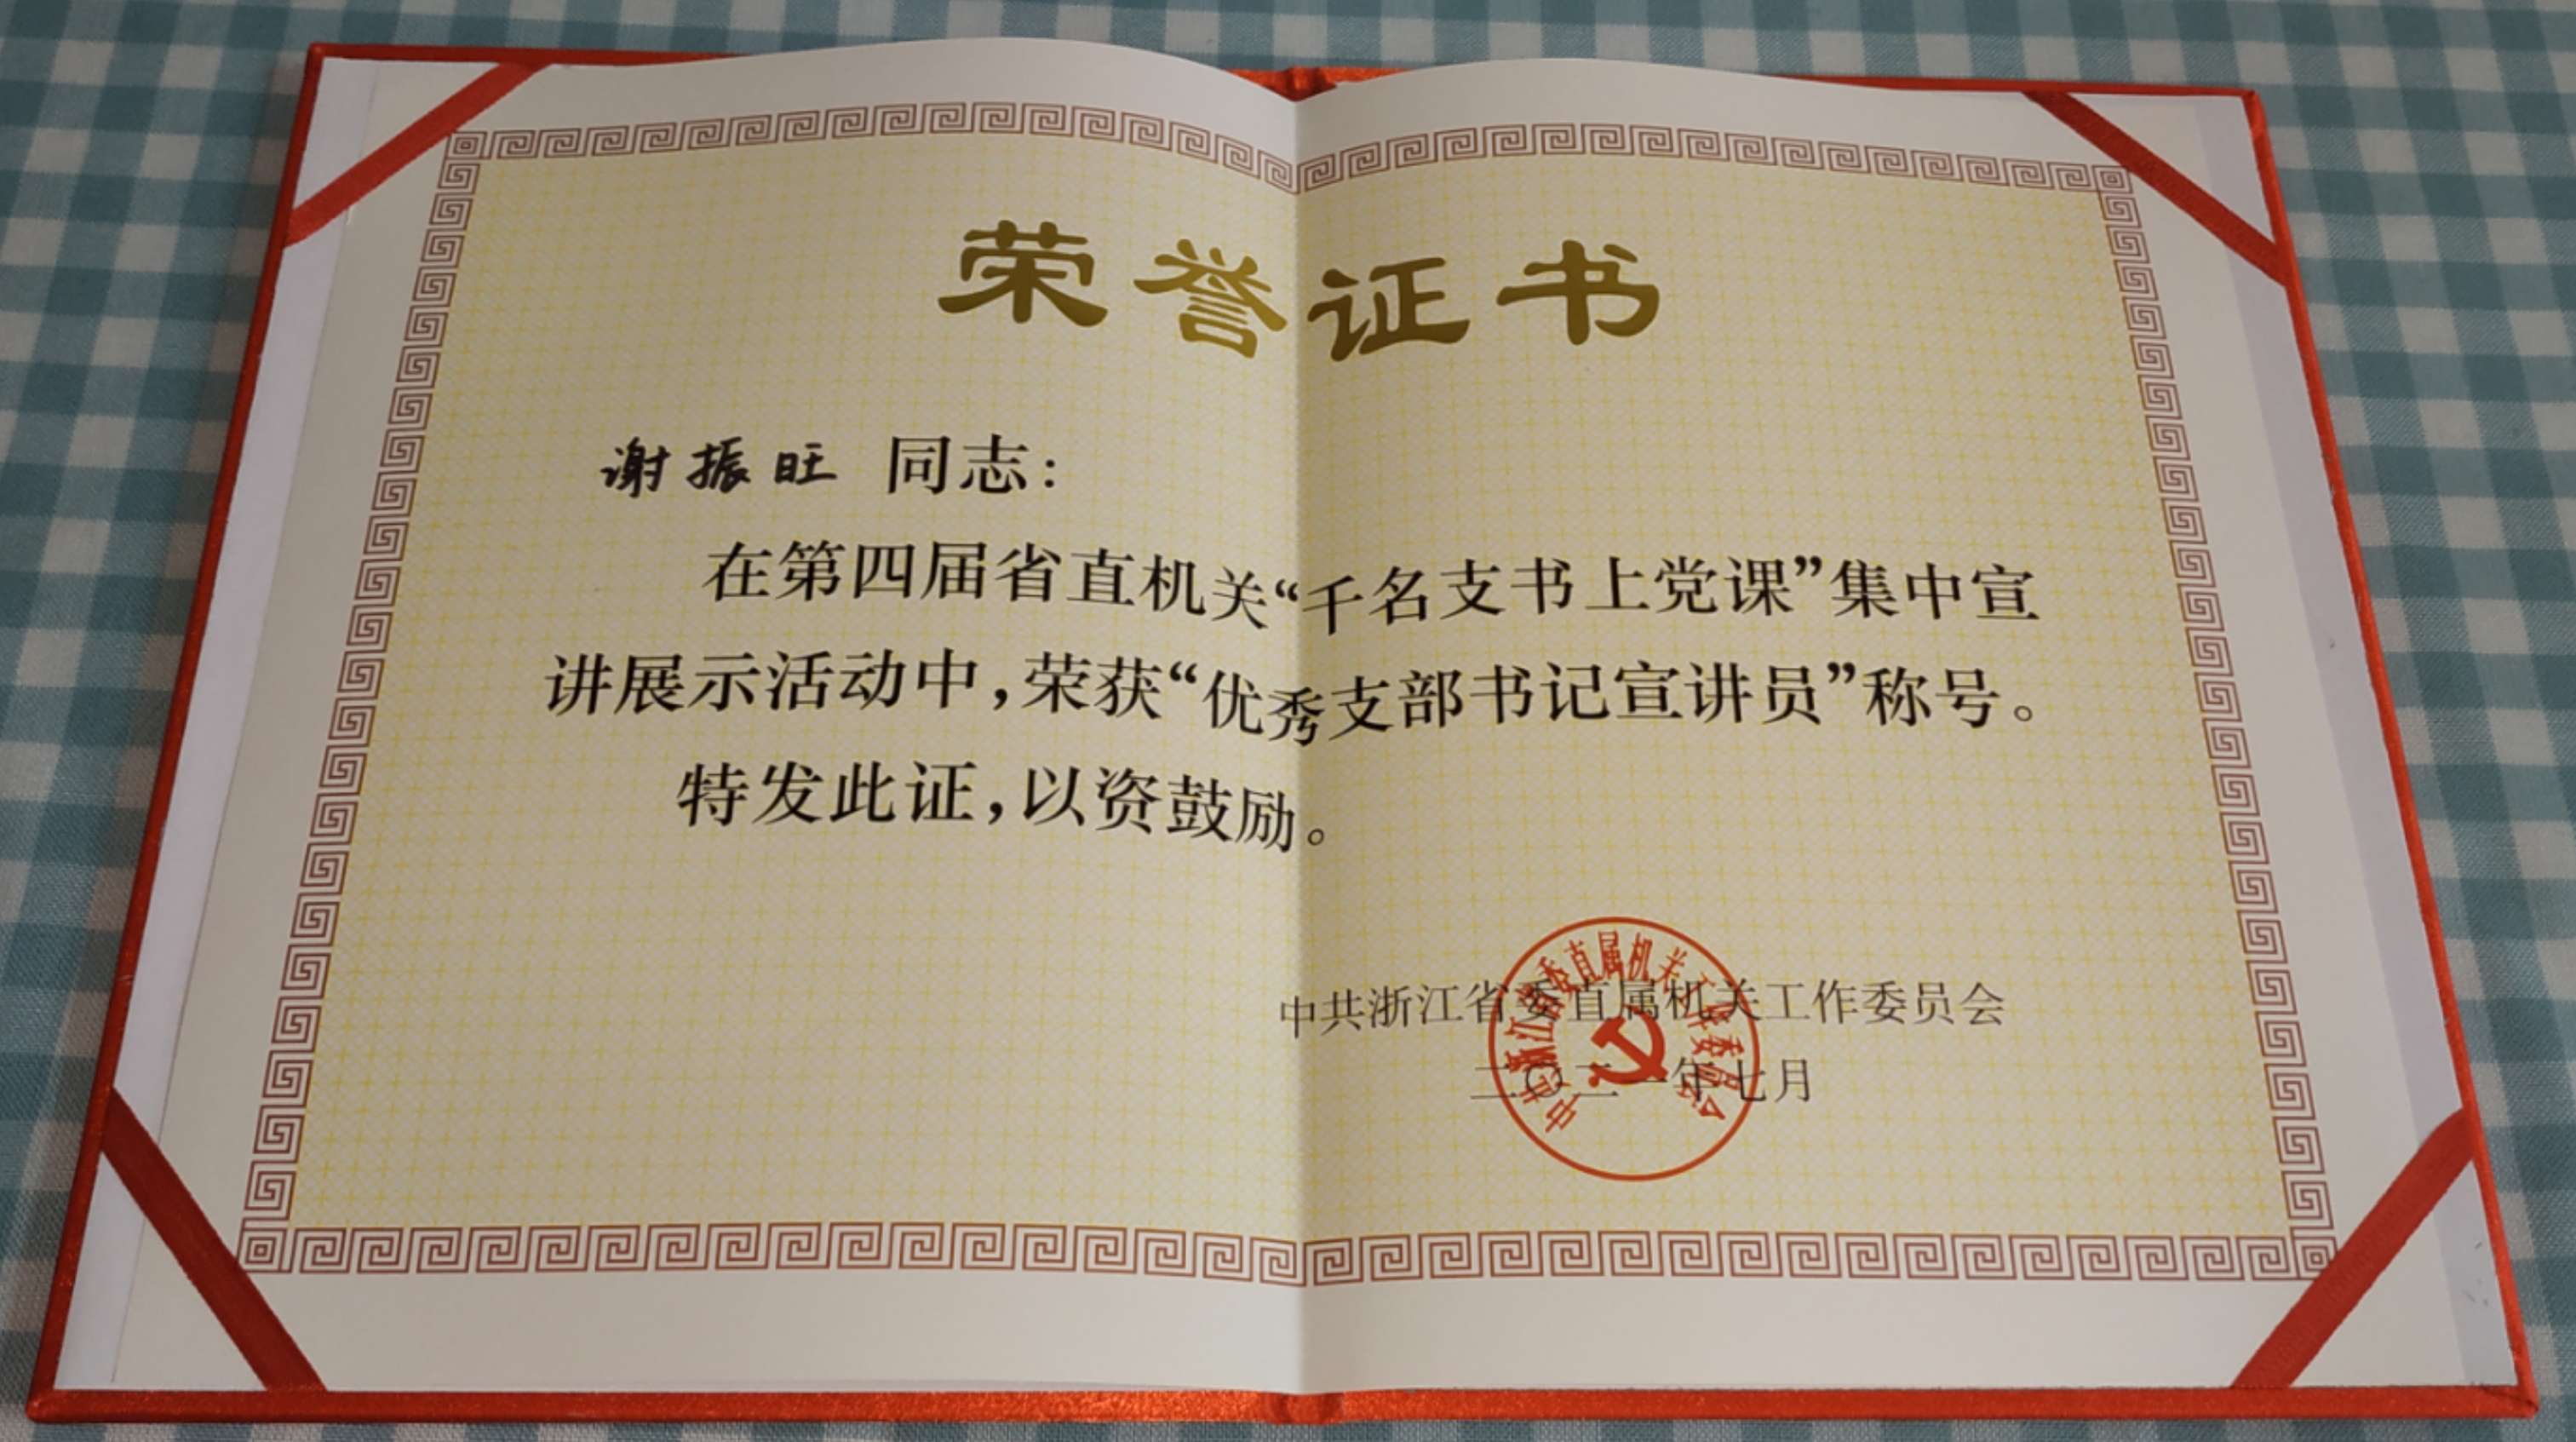 荣誉证书
谢振旺 同志：
在第四届省直机关“千名支书上党课”集中宣
讲展示活动中，荣获“优秀支部书记宣讲员”称号。
特发此证，以资鼓励。
中共浙江省委直属机关工作委员会
二〇二一年七月
中共浙江省委直属机关工作委员会